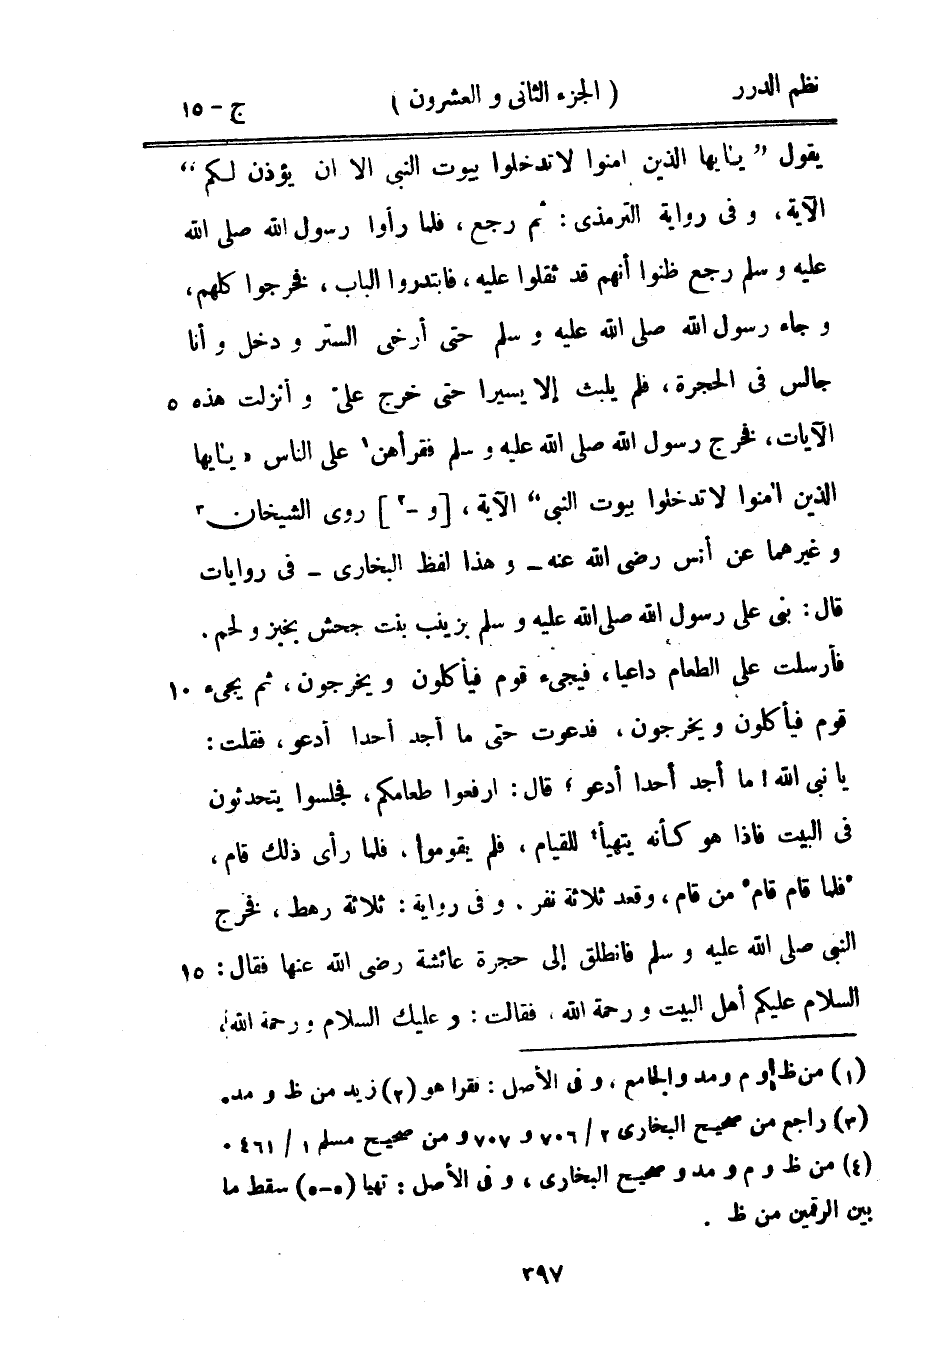 نظم الدرر ( الجزء الثانى و العشرون ) ج - ١٥
يقول ” يٰايها الذين اٰمنوا لا تدخلوا بيوت النبى الا ان يؤذن لكم “
الآية، و فى رواية الترمذى : ثم رجع ، فلما رأوا رسول الله صلى الله
عليه و سلم رجع ظنوا أنهم قد ثقلوا عليه ، فابتدروا الباب ، فخرجوا كلهم،
و جاء رسول الله صلى الله عليه و سلم حتى أرخى الستر و دخل و أنا
جالس فى الحجرة، فلم يلبث إلا يسيرا حتى خرج علىّ و أنزلت هذه ٥
الآيات، فخرج رسول الله صلى الله عليه و سلم فقرأهن١ على الناس ” يٰايها
الذين اٰمنوا لا تدخلوا بيوت النبى “ الآية ، [و -٢] روى الشيخان٣
و غيرهما عن أنس رضى الله عنه ـ و هذا لفظ البخارى ـ فى روايات
قال : بنى على رسول الله صلى الله عليه و سلم بزينب بنت جحش بخبز و لحم .
فأرسلت على الطعام داعيا، فيجىء قوم فيأكلون و يخرجون، ثم يجىء ١٠
قوم فيأكلون و يخرجون، فدعوت حتى ما أجد أحدا أدعو، فقلت :
يا نبى الله ! ما أجد أحدا أدعو ؛ قال : ارفعوا طعامكم، فجلسوا يتحدثون
فى البيت فاذا هو كأنه يتهيأ٤ للقيام ، فلم يقوموا، فلما رأى ذلك قام،
٥فلما قام قام٥ من قام، وقعد ثلاثة نفر . و فى رواية : ثلاثة رهط ، فخرج
النبى صلى الله عليه و سلم فانطلق إلى حجرة عائشة رضى الله عنها فقال : ١٥
السلام عليكم أهل البيت و رحمة الله ، فقالت : و عليك السلام و رحمة الله،
(١) من ظ و م و مد و الجامع ، و فى الأصل : نقرا هو (٢) زيد من ظ و مد.
(٣) راجع من صحيح البخارى ٢ / ٧٠٦ و ٧٠٧ و من صحيح مسلم ١ / ٤٦١ .
(٤) من ظ و م و مد و صحيح البخارى ، و فى الأصل : تهيا (٥-٥) سقط ما
بين الرقمين من ظ .
٣٩٧